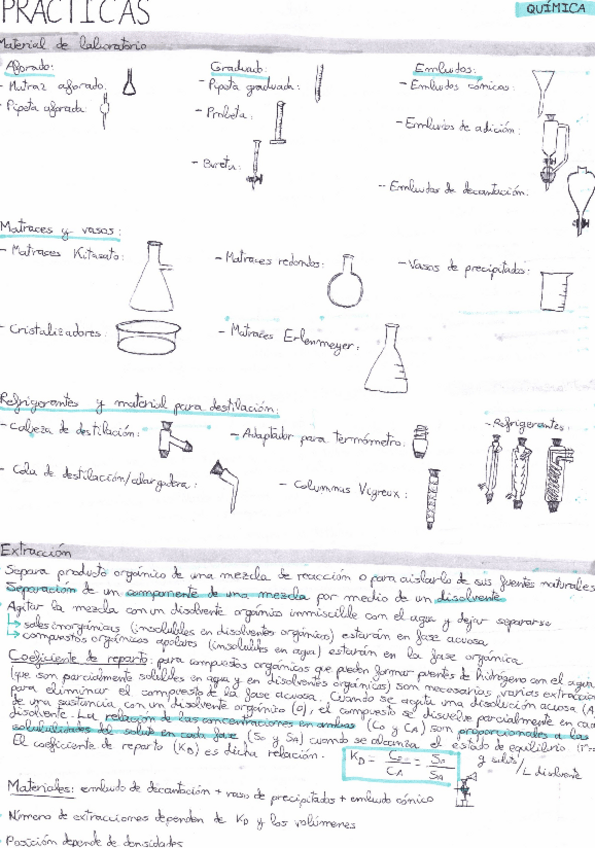 PRÁCTICAS
QUÍMICA
Material de laboratorio
Aforado:
- Matraz aforado:
- Pipeta aforada:
Graduado:
- Pipeta graduada:
- Probeta:
- Bureta:
Embudos:
- Embudos cónicos:
- Embudos de adición:
- Embudos de decantación:
Matraces y vasos:
- Matraces Kitasato:
- Matraces redondos:
- Vasos de precipitados:
- Cristalizadores:
- Matraces Erlenmeyer:
Refrigerantes y material para destilación:
- Cabeza de destilación:
- Adaptador para termómetro:
- Refrigerantes:
- Cola de destilación/alargadera:
- Columnas Vigreux:
Extracción
Separa producto orgánico de una mezcla de reacción o para aislarlo de sus fuentes naturales
Separación de un componente de una mezcla por medio de un disolvente
Agitar la mezcla con un disolvente orgánico inmiscible con el agua y dejar separarse
↳ sales inorgánicas (insolubles en disolventes orgánico) estarán en fase acuosa
↳ compuestos orgánicos apolares (insolubles en agua) estarán en la fase orgánica
Coeficiente de reparto: para compuestos orgánicos que pueden formar puentes de hidrógeno con el agua
(que son parcialmente solubles en agua y en disolventes orgánicos) son necesarias varias
para eliminar el compuesto de la fase acuosa. Cuando se agita una disolución acuosa (A)
de una sustancia con un disolvente orgánico (o), el compuesto se disuelve parcialmente en
disolvente. La relación de las concentraciones en ambas (Co y CA) son proporcionales a las
solubilidades del soluto en cada fase (So y SA) cuando se alcanza el estado de equilibrio
El coeficiente de reparto (KD) es dicha relación. KD = Co/CA = So/SA g soluto/L disolvente
Materiales: embudo de decantación + vaso de precipitados + embudo cónico
Número de extracciones dependen de KD y los volúmenes
Posición depende de densidades